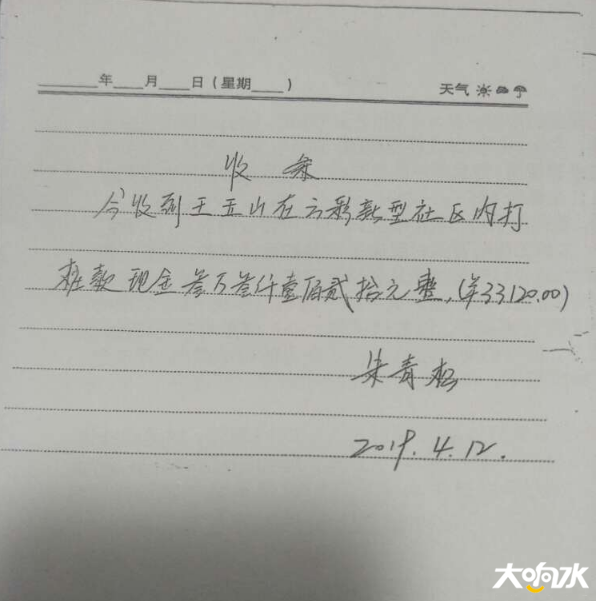 年 月 日（星期 ） 天气
收条
今收到王五山在云彩新型社区内打
桩款现金叁万叁仟壹佰贰拾元整，(¥33120.00)
朱青松
2019.4.12.
大响水